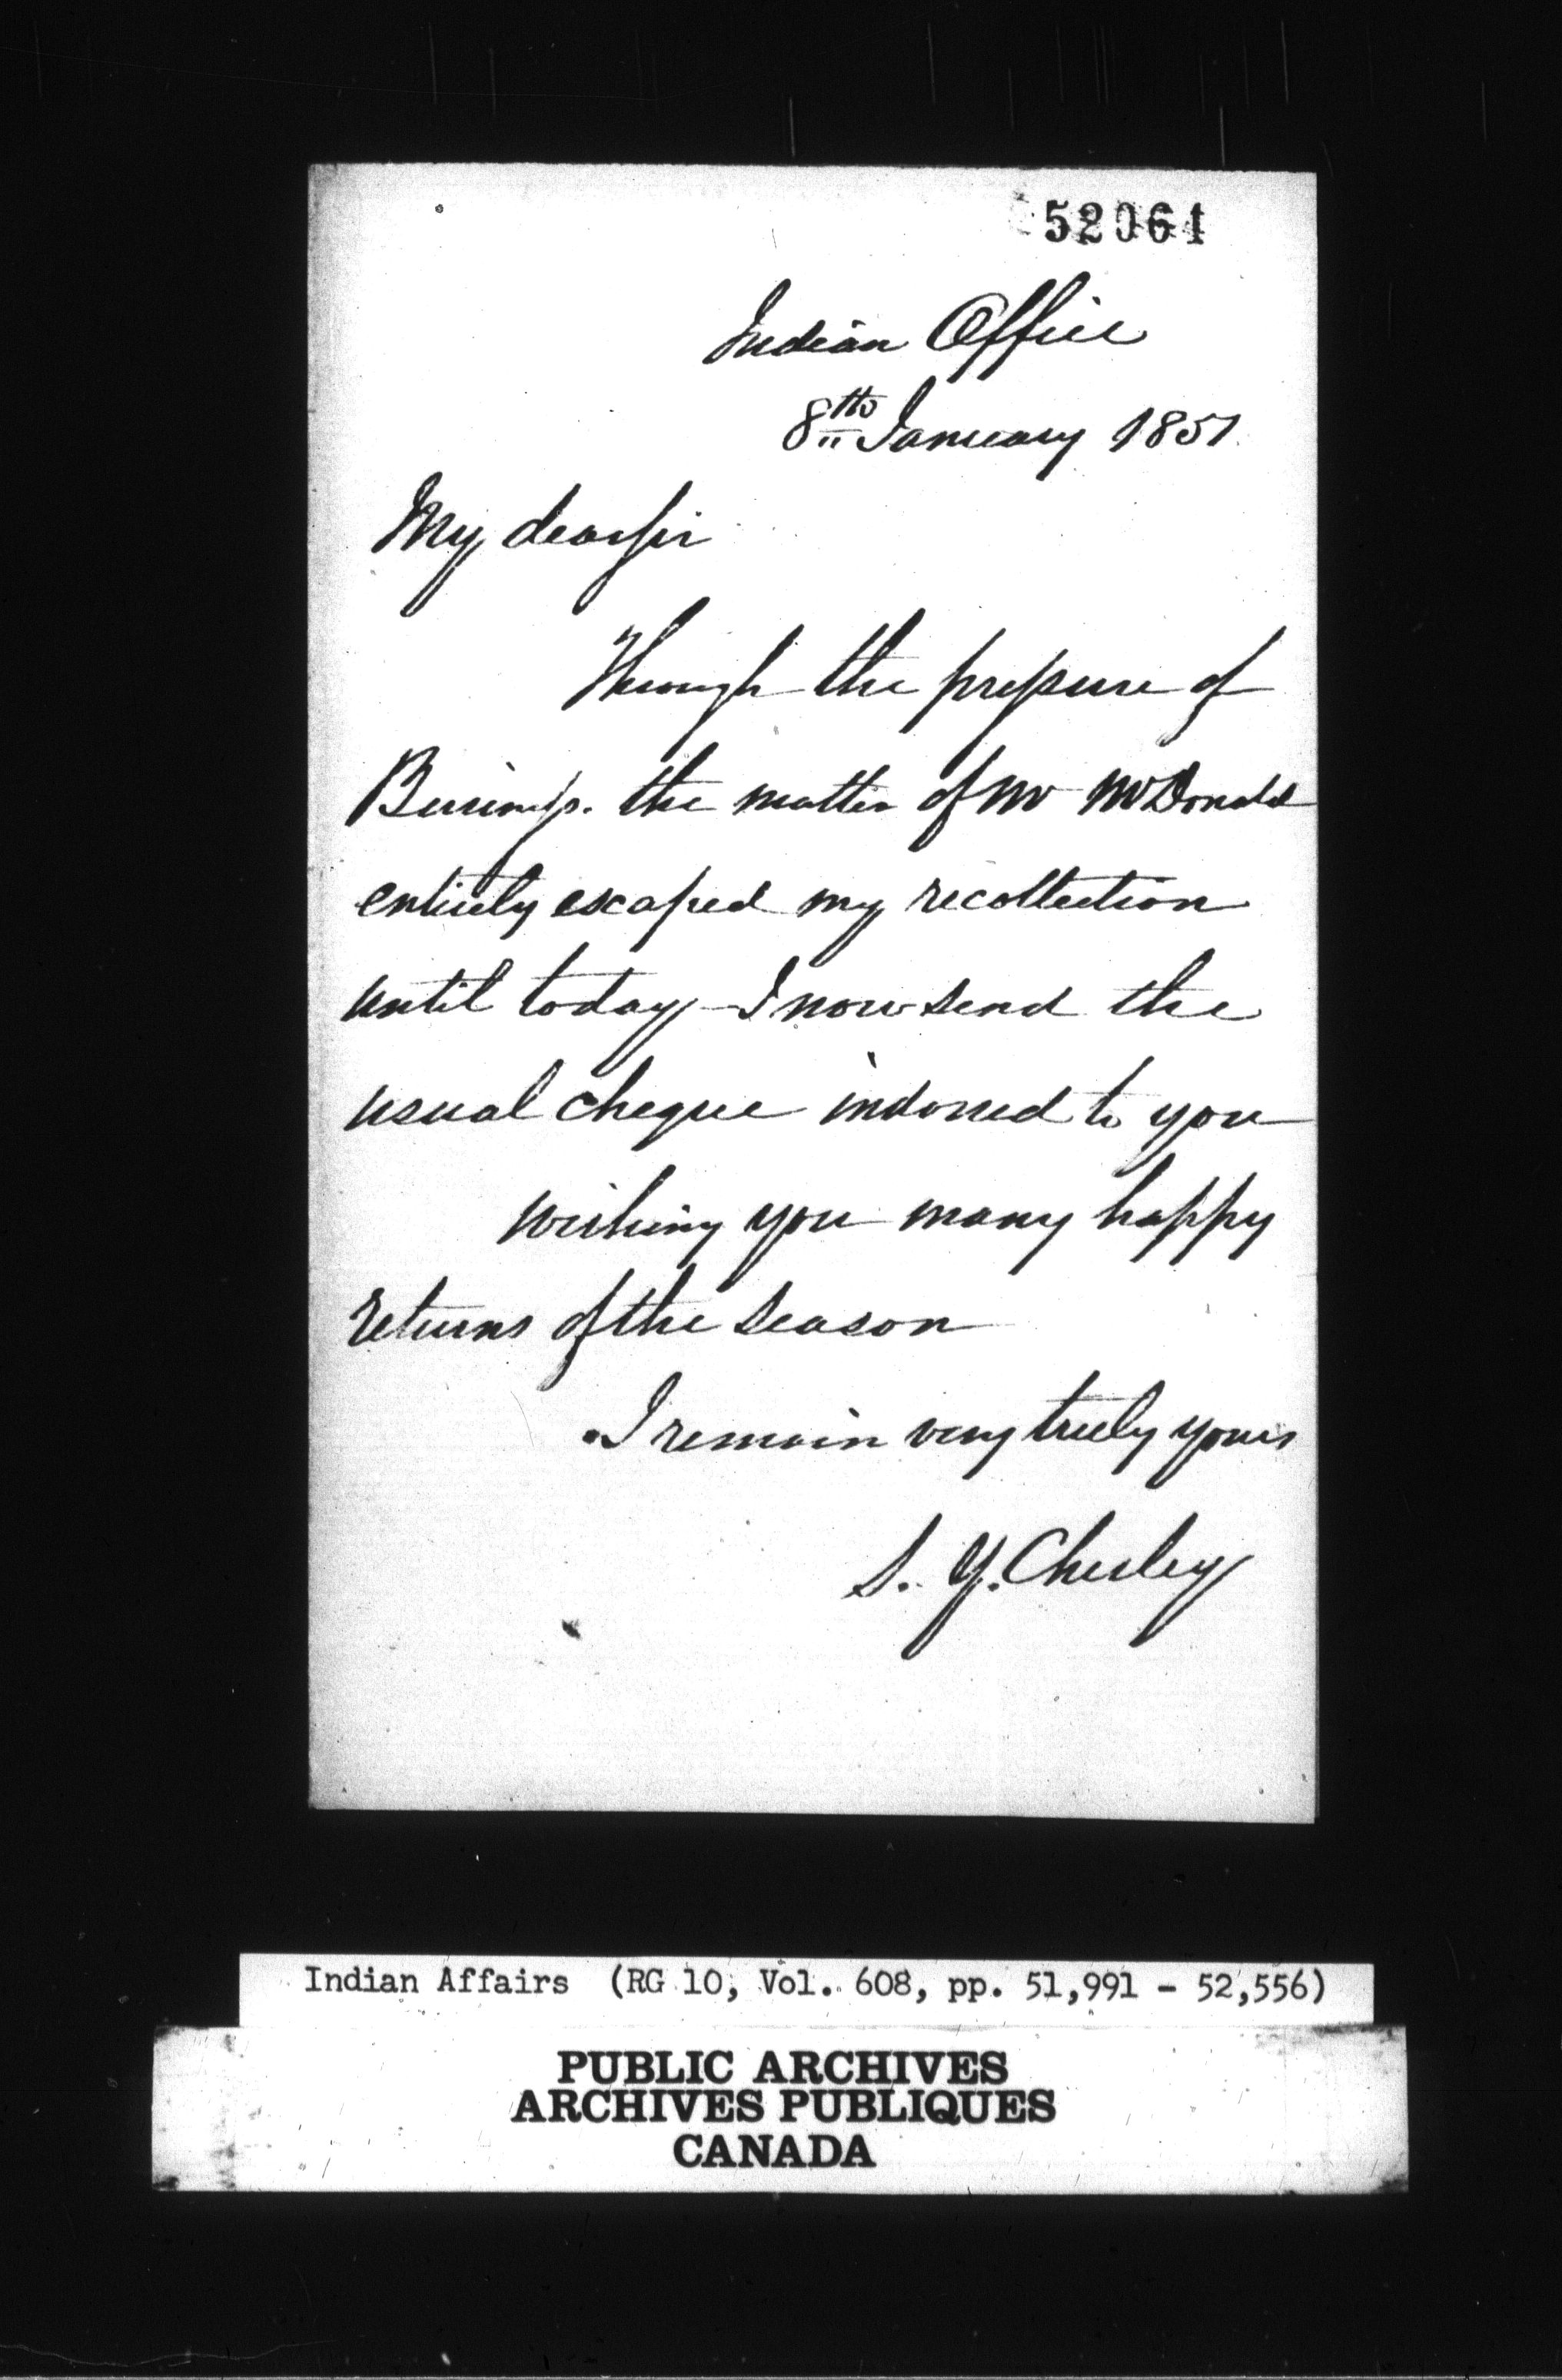 52061
Indian Office
8th January 1851
My dear Sir
Through the pressure of
Business. the matter of Mr McDonald
entirely escaped my recollection
until today - I now send the
usual cheque indorsed to you
wishing you many happy
returns of the season
I remain very truly yours
S. Y. Chesley
Indian Affairs (RG 10, Vol. 608, pp. 51,991 - 52,556)
PUBLIC ARCHIVES
ARCHIVES PUBLIQUES
CANADA